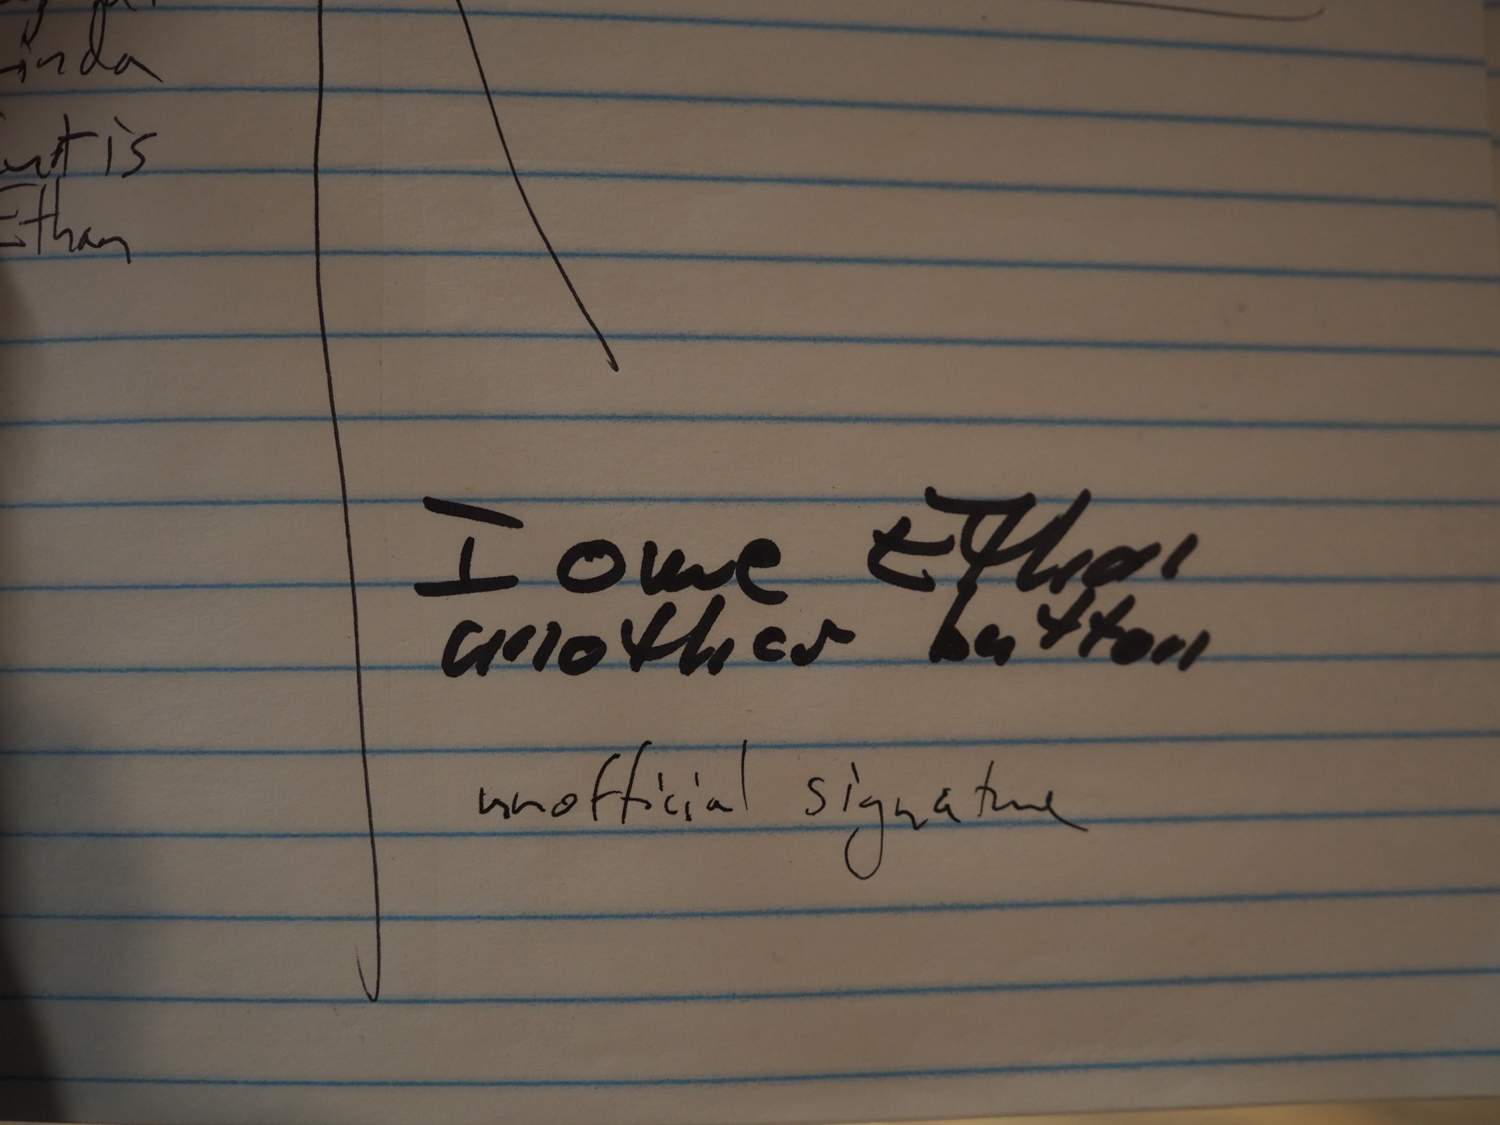 Linda
Curtis
Ethan
I owe Ethan
another button
unofficial signature